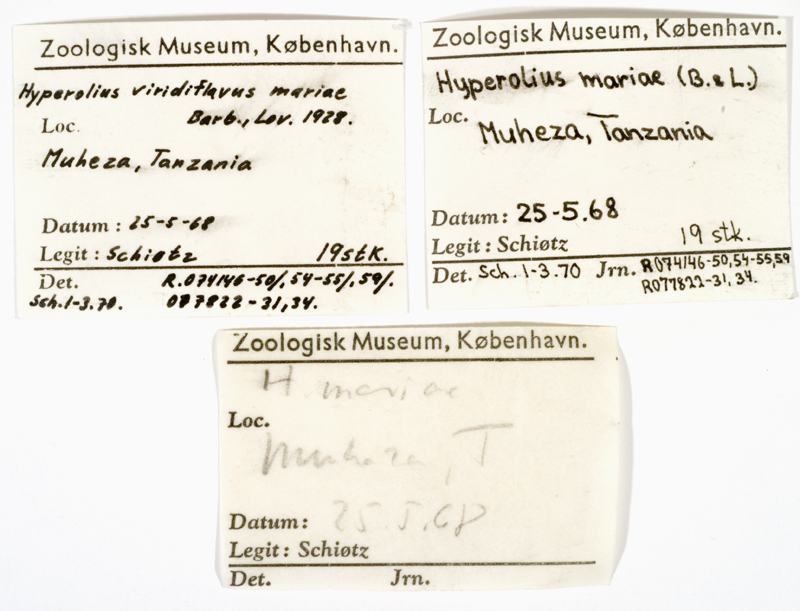 Zoologisk Museum, København.
Hyperolius viridiflavus mariae
Barb., Lov. 1928.
Loc.
Muheza, Tanzania
Datum: 25-5-68
Legit: Schiøtz 19 stk.
Det. R.074146-50/, 54-55/, 59/.
Sch. 1-3.70. 077822-31, 34.
Zoologisk Museum, København.
Hyperolius mariae (B. & L.)
Loc.
Muheza, Tanzania
Datum: 25-5.68
Legit: Schiøtz 19 stk.
Det. Sch. 1-3.70 Jrn. R074146-50, 54-55, 59
R077822-31, 34.
Zoologisk Museum, København.
H. mariae
Loc.
Muheza, T
Datum: 25.5.68
Legit: Schiøtz
Det. Jrn.